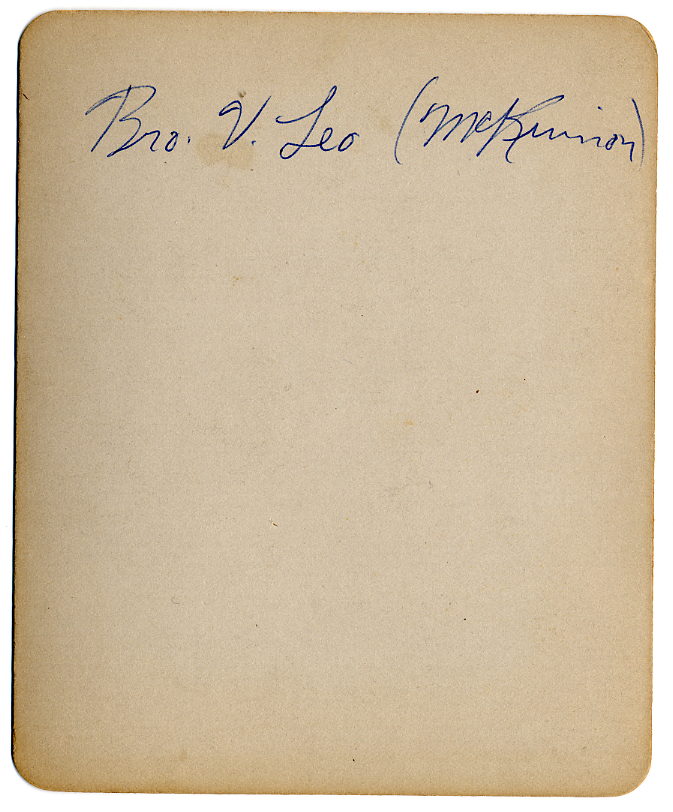 Bro. V. Leo (McKinnon)